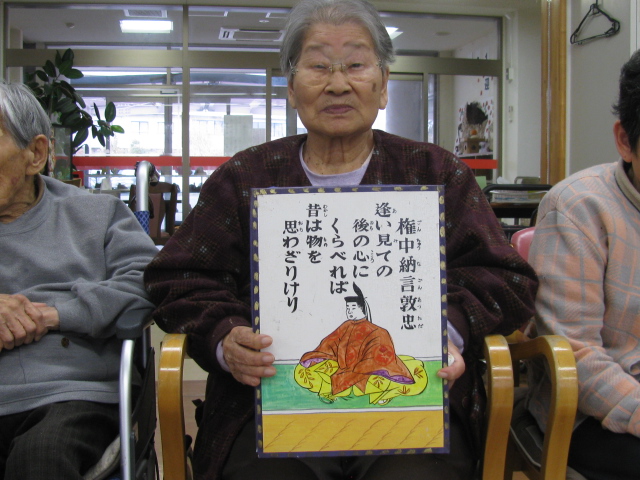 権中納言敦忠
逢い見ての
後の心に
くらべれば
昔は物を
思わざりけり